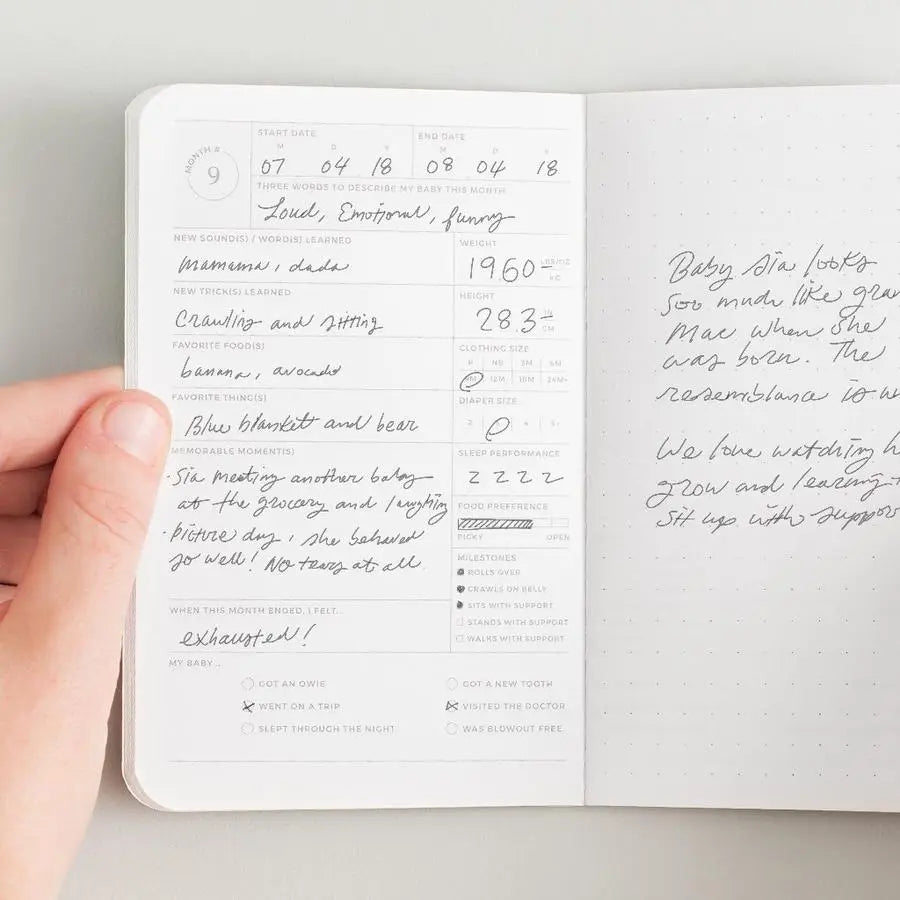 MONTH #
9
START DATE
M D Y
07 04 18
END DATE
M D Y
08 04 18
THREE WORDS TO DESCRIBE MY BABY THIS MONTH
Loud, Emotional, funny
NEW SOUND(S) / WORD(S) LEARNED
mamama, dada
NEW TRICK(S) LEARNED
Crawling and sitting
FAVORITE FOOD(S)
banana, avocado
FAVORITE THING(S)
Blue blankett and bear
MEMORABLE MOMENT(S)
·Sia meeting another baby
at the grocery and laughing
·picture day, she behaved
so well! No tears at all.
WHEN THIS MONTH ENDED, I FELT...
exhausted!
WEIGHT
19.60
LBS/OZ
KG
HEIGHT
28.3
IN
CM
CLOTHING SIZE
P NB 3M 6M
9M 12M 18M 24M+
DIAPER SIZE
2 4 5+
SLEEP PERFORMANCE
Z Z Z Z
FOOD PREFERENCE
PICKY OPEN
MILESTONES
ROLLS OVER
CRAWLS ON BELLY
SITS WITH SUPPORT
STANDS WITH SUPPORT
WALKS WITH SUPPORT
MY BABY...
GOT AN OWIE
GOT A NEW TOOTH
WENT ON A TRIP
VISITED THE DOCTOR
SLEPT THROUGH THE NIGHT
WAS BLOWOUT FREE
Baby Sia looks
soo much like
Mac when she
was born. The
resemblance is
We love watching
grow and learning
sit up with